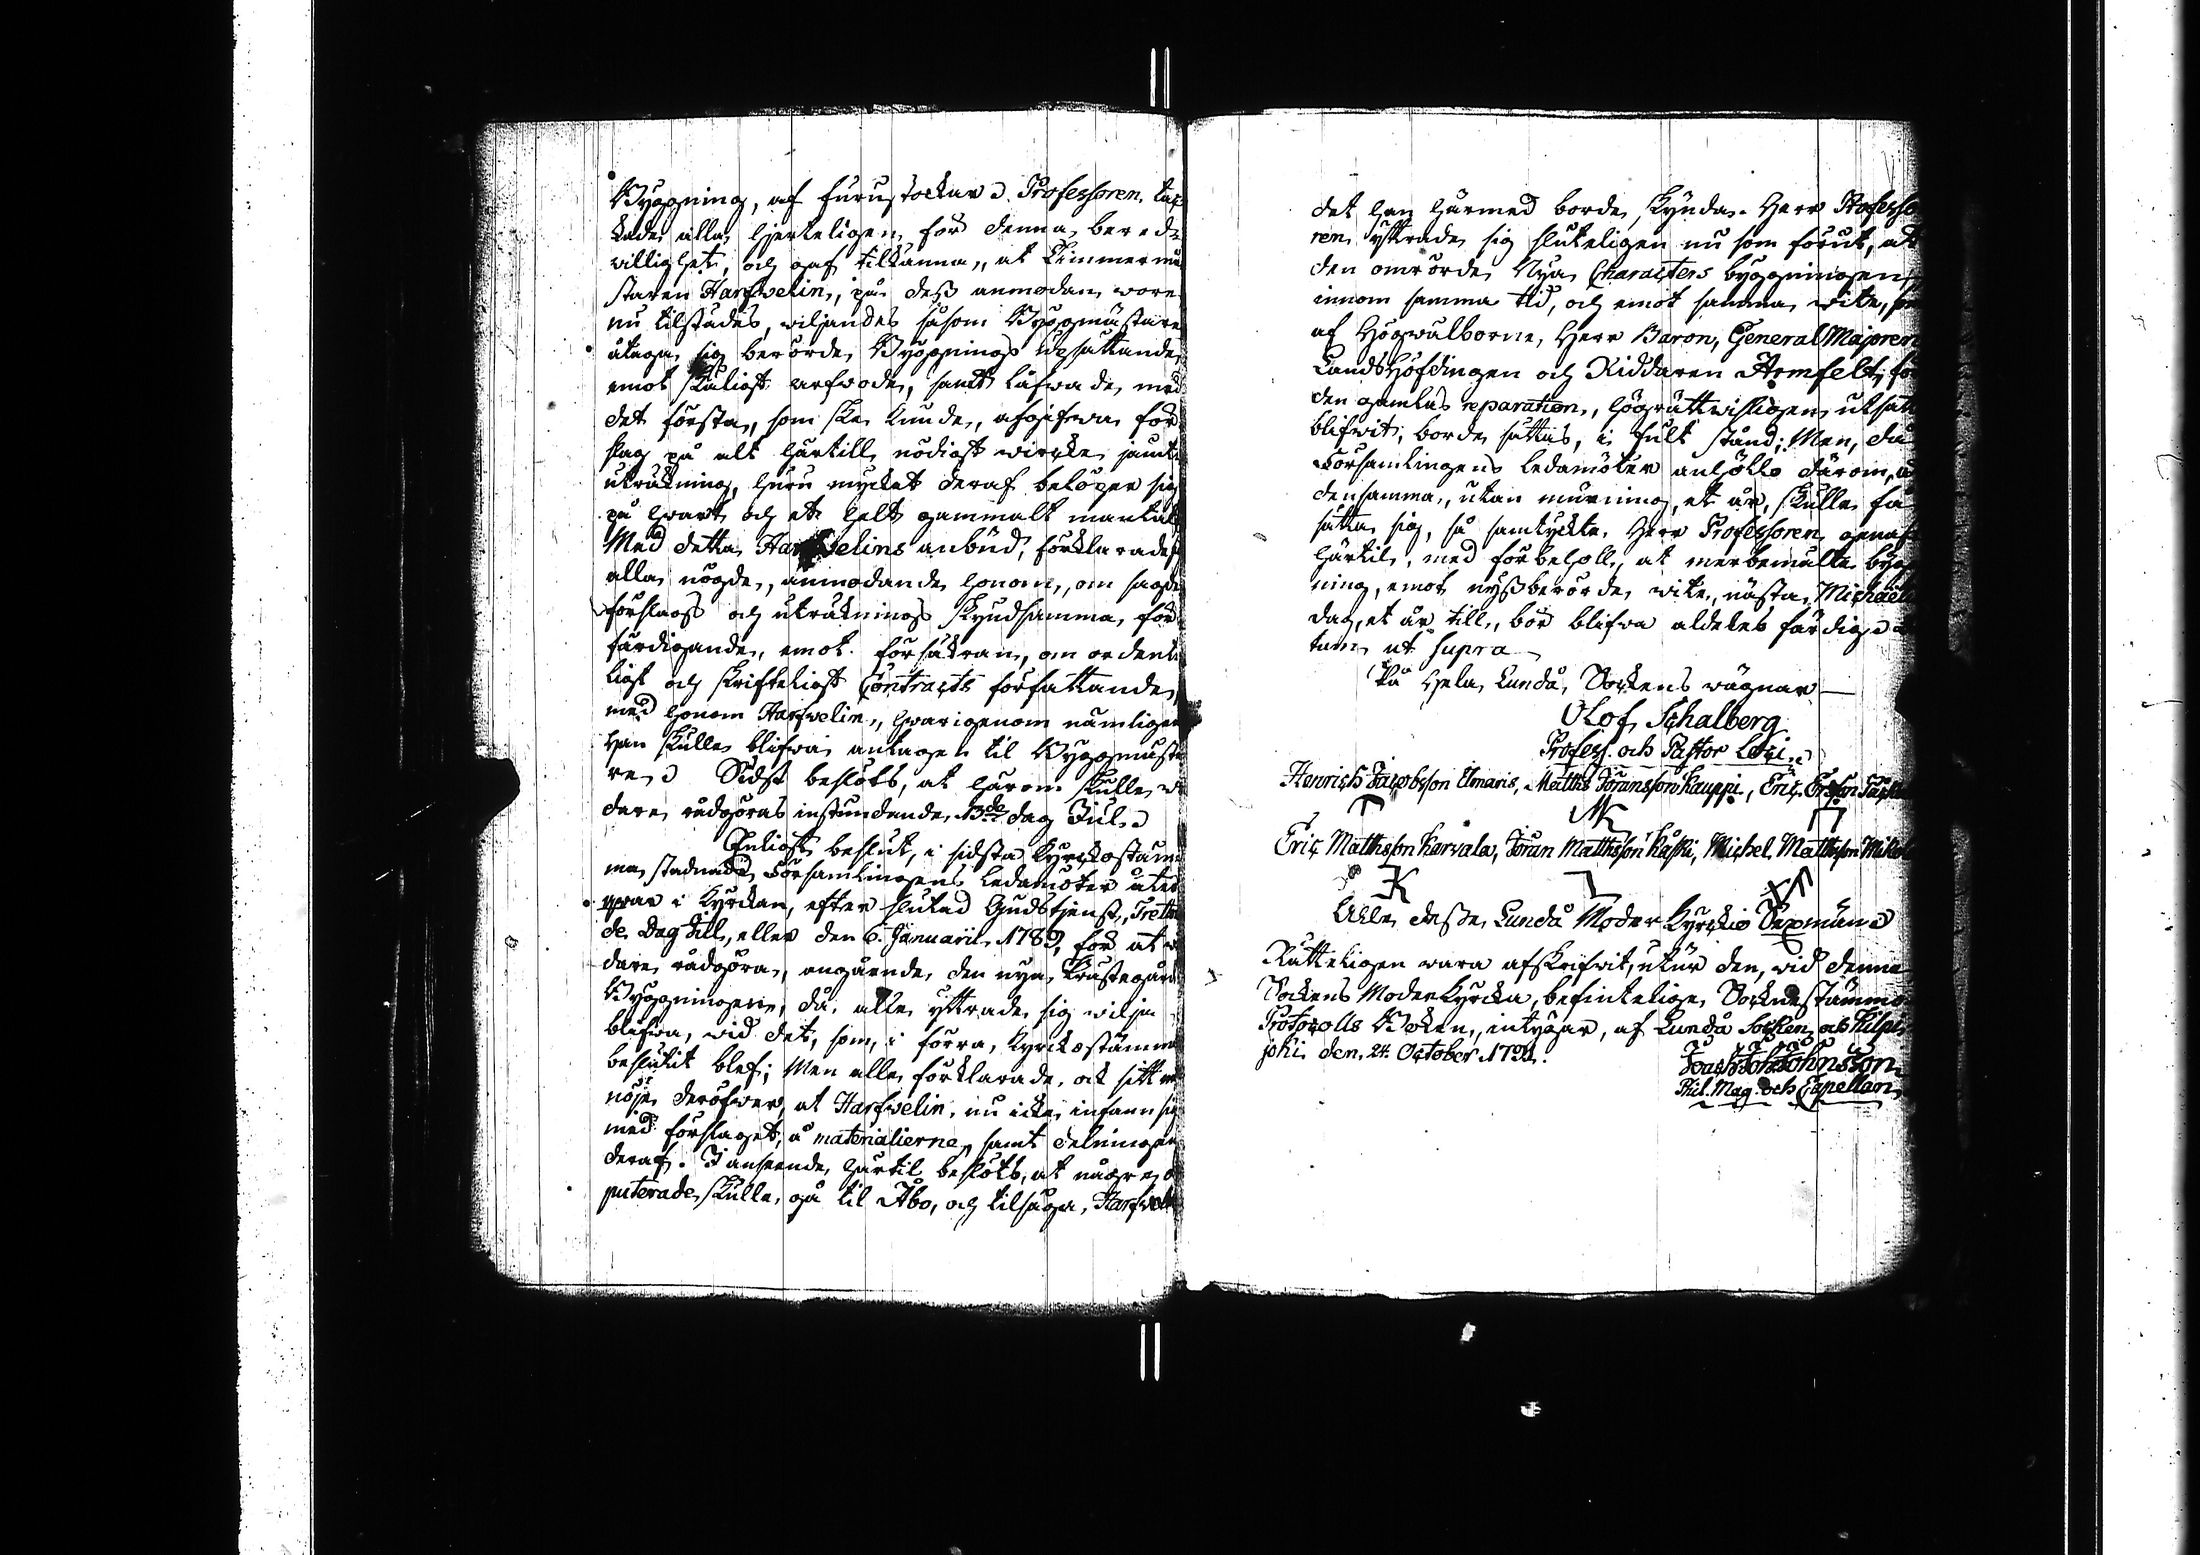 Byggning, af furustockar. Professoren, tac
kade alla, hjerteligen, för denna, bered=
villighet, och gaf tillkänna, at Timmermä
staren Harfwelin, på dess anmodan, wore
nu tilstädes, wiljandes såsom Byggmästare
åtaga sig berörde, Byggnings upsättande,
emot skäligt arfwode, samt låfwade, med
det första, som ske kunde, afgifwa för
slag på alt härtill nödigt wircke jämte
uträkning, huru mycket deraf belöper sig
på hwart och et helt gammalt mantal
Med detta, Harfwelins anbud, förklarades
alla nögde, anmodande honom, om sagde
förslags och uträknings skyndsamma, för
färdigande, emot försäkran, om ordent
ligt och skrifteligt Contracts författande,
med honom Harfwelin, hwarigenom nämligen
han skulle blifwa antagen til Byggmästa
re. Sidst beslöts, at härom skulle wi
dare rådgöras instundande 13de dag Jul.
Enligt beslut, i sidsta Kyrckostäm
ma, stadnade Församlingens Ledamöter åter
qwar i Kyrckan, efter slutad Gudstjenst, Tretton
de Dag Jul, eller den 6. Januarii 1789, för at wi
dare rådgöra, angående, den nya Prästegårds
Byggningen, då alle yttrade sig wilja
blifwa, wid det, som, i förra, Kyrckostämma
beslutit blef; Men alle förklarade, ock sitt mis
nöje deröfwer, at Harfwelin, nu icke infann sig
med förslaget, å materialierne, samt delningen
deraf. I anseende, härtil beslöts, at någre, de
puterade skulle, gå til Åbo, och tilsäga, Harfwelin
det han härmed borde, skynda. Herr Professo
ren, yttrade sig sluteligen nu som förut, at
den omrörde Nya Characters byggningen,
innom samma tid, och emot samma wite, som
af Högwälborne, Herr Baron, General Majoren
Landshöfdingen och Riddaren Armfelt, för
den gamlas reparation, högrättwisligen utsatt
blifwit, borde sättas, i fult stånd; Men, då
Församlingens Ledamöter anhöllo därom, at
densamma, utan murning, et år, skulle få
sätta sig, så samtyckte Herr Professoren genast
härtil, med förbehåll, at merbemälte bygg
ning, emot nyssberörde wite, nästa, Michaeli
dag, et år till, bör blifwa aldeles färdig.
tum ut supra
På Hela, Lundå, Sockens wägnar
Olof Schalberg
Profess. och Pastor Loci.
Henrich Jacobsson Elmaris, Matths Göransson Kauppi, Eric Ersson
Eric Matthsson Karvala, Göran Matthsson Kaski, Michel Matthsson
Alle desse, Lundå Moder Kyrckio Sexmän
Rätteligen wara afskrifwit, utur den, wid denna
Sockens Moderkyrcka, befintelige, Socknestämmo
Protocolls Boken, intygar, af Lundå Socken och Hilpis
joki den, 24. October
Johnsson
Phil. Mag. och Capellan